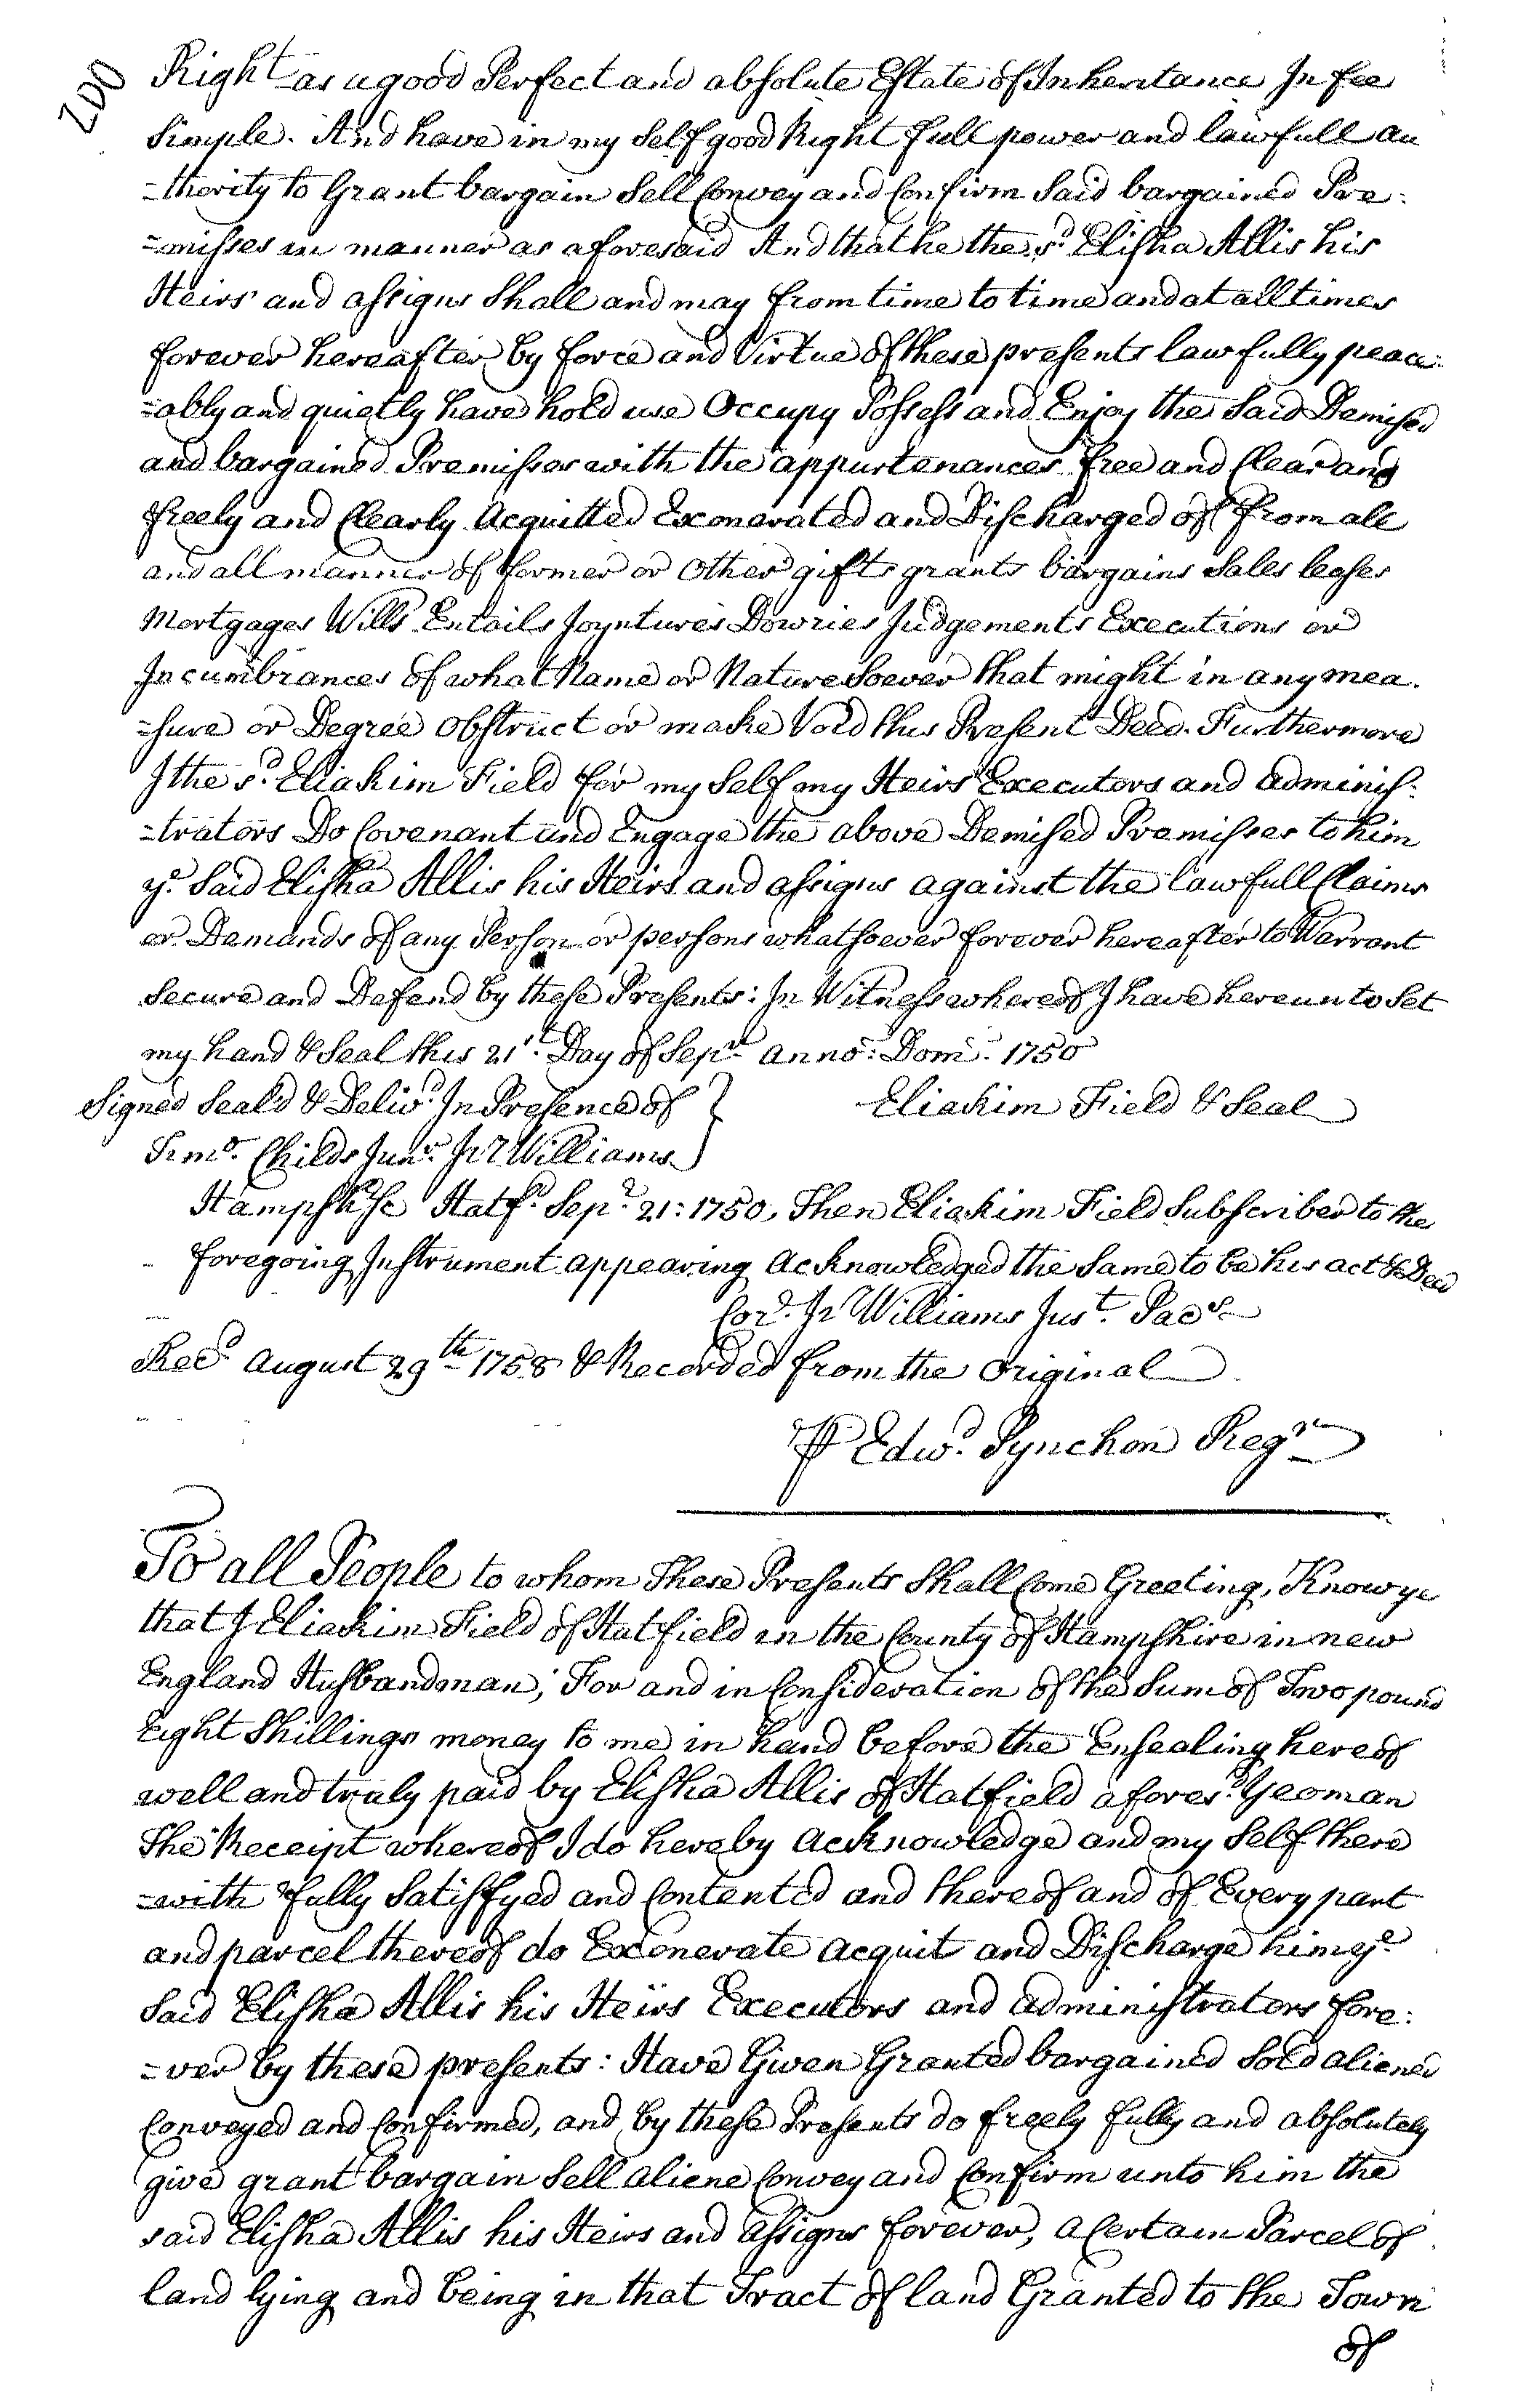 200
Right as a good Perfect and absolute Estate of Inheritance In fee
Simple. And have in my Self good Right full power and lawfull au
=thority to Grant bargain Sell Convey and Confirm Said bargained Pre=
=misses in manner as aforesaid And that he the sd. Elisha Allis his
Heirs and assigns Shall and may from time to time and at all times
forever hereafter by force and Virtue of these presents lawfully peace=
=ably and quietly have hold use Occupy Possess and Enjoy the Said Demised
and bargained Premisses with the appurtenances free and Clear and
freely and Clearly Acquitted Exonarated and Discharged of from all
and all manner of former or Other gifts grants bargains Sales leases
Mortgages Wills Entails Joyntures Dowries Judgements Executions or
Incumbrances of what Name or Nature Soever that might in any mea.
=sure or Degree Obstruct or make Void this Present Deed. Furthermore
I the sd. Eliakim Field for my Self my Heirs Executors and adminis=
=trators Do Covenant and Engage the above Demised Premisses to him
ye. Said Elisha Allis his Heirs and assigns against the lawfull Claims
or Demands of any Person or persons whatsoever forever hereafter to Warrant
Secure and Defend by these Presents: In Witness whereof I have hereunto Set
my hand & Seal this 21st. Day of Sepr. anno: Dom. 1750
Signed Seald & Delivd. In Presence of
Eliakim Field & Seal
Saml. Childs Junr. Isr Williams
Hampshise Hatfd. Sepr. 21: 1750, Then Eliakim Field Subscriber to the
foregoing Instrument appearing acknowledged the Same to be his act & Deed
Cord. Isr Williams Just. Pacs.
Recd. August 29th 1758 & Recorded from the Original
P Edwd. Pynchon Regr
To all People to whom These Presents Shall Come Greeting, Know ye
that I Eliakim Field of Hatfield in the County of Hampshire in new
England Husbandman; For and in Consideration of the Sum of Two pound
Eight Shillings money to me in hand before the Ensealing hereof
well and truly paid by Elisha Allis of Hatfield aforesd. Yeoman
The Receipt whereof I do hereby acknowledge and my Self there
=with fully Satisfyed and Contented and thereof and of Every part
and parcel thereof do Exonerate acquit and Discharge him ye
Said Elisha Allis his Heirs Executors and administrators fore=
=ver by these presents: Have Given Granted bargained Sold aliened
Conveyed and Confirmed, and by these Presents do freely fully and absolutely
give grant bargain Sell aliene Convey and Confirm unto him the
said Elisha Allis his Heirs and assigns forever, a Certain Parcel of
land lying and being in that Tract of land Granted to the Town
of